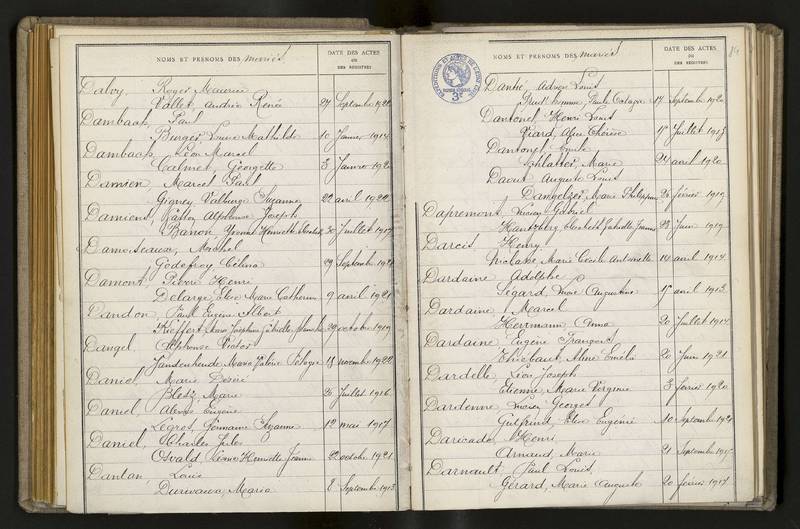 NOMS ET PRÉNOMS DES mariés
DATE DES ACTES
OU
DES REGISTRES
Daloy, Roger Maurice
Vallet, Andrée Renée 27 Septembre 1922
Dambach, Paul
Burger, Mathilde 10 Janvier 1914
Dambach, Léon Marcel
Calmet, Georgette 3 Janvier
Damien, Marcel Paul
Gigney, Suzanne 22 avril 1922
Damiens, Alphonse Joseph
Baron, Yvonne Henriette 30 Juillet 1917
Damoiseaux, Michel
Godefroy Célina 29 Septembre
Damont, Pierre Henri
Delarge, Marie Catherine 9 avril 1921
Dandon, Paul Eugène Albert
Kieffert, Joséphine Gabrielle Blanche 29 octobre 1919
Dangel, Alphonse Victor
Vandenhende, Maria Valérie Pélagie 18 novembre 1922
Daniel, Marie Désiré
Bletz, Marie 25 Juillet 1916
Daniel, Alexis Eugène
Legros, Germaine Suzanne 12 mai 1917
Daniel, Charles Jules
Osvald, Henriette Jeanne 22 octobre 1921
Danlan, Louis
Maria 8 Septembre 1913
NOMS ET PRÉNOMS DES mariés
DATE DES ACTES
OU
DES REGISTRES
3F
Danté, Adrien Louis
Paule 17 Septembre 1920
Dantonel, Henri Louis
Viard, Thérèse 17 Juillet 1913
Dantonel, Emile
Schlatter, Marie 24 avril 1920
Daout, Auguste Louis
Dangelzer, Marie Philippine 26 février 1919
Dapremont, Lucien Gabriel
Hantzberg, Elisabeth Gabrielle Jeanne 28 Juin 1919
Darcis, Henry
Nicolasse, Marie Cécile Antoinette 14 avril 1914
Dardaine, Adolphe
Ségard, Augustine 17 avril 1913
Dardaine, Marcel
Herrmann, Anna 20 Juillet 1914
Dardaine, Eugène François
Thiébaut, Aline Emélie 20 Juin 1921
Dardelle, Léon Joseph
Etienne, Marie Virginie 3 février 1920
Dardenne, Lucien Georges
Gulfried, Eugénie 10 Septembre
Daricade, Henri
Arnaud, Marie 21 Septembre
Darnault, Paul Louis,
Gérard, Marie Auguste 20 février 1917